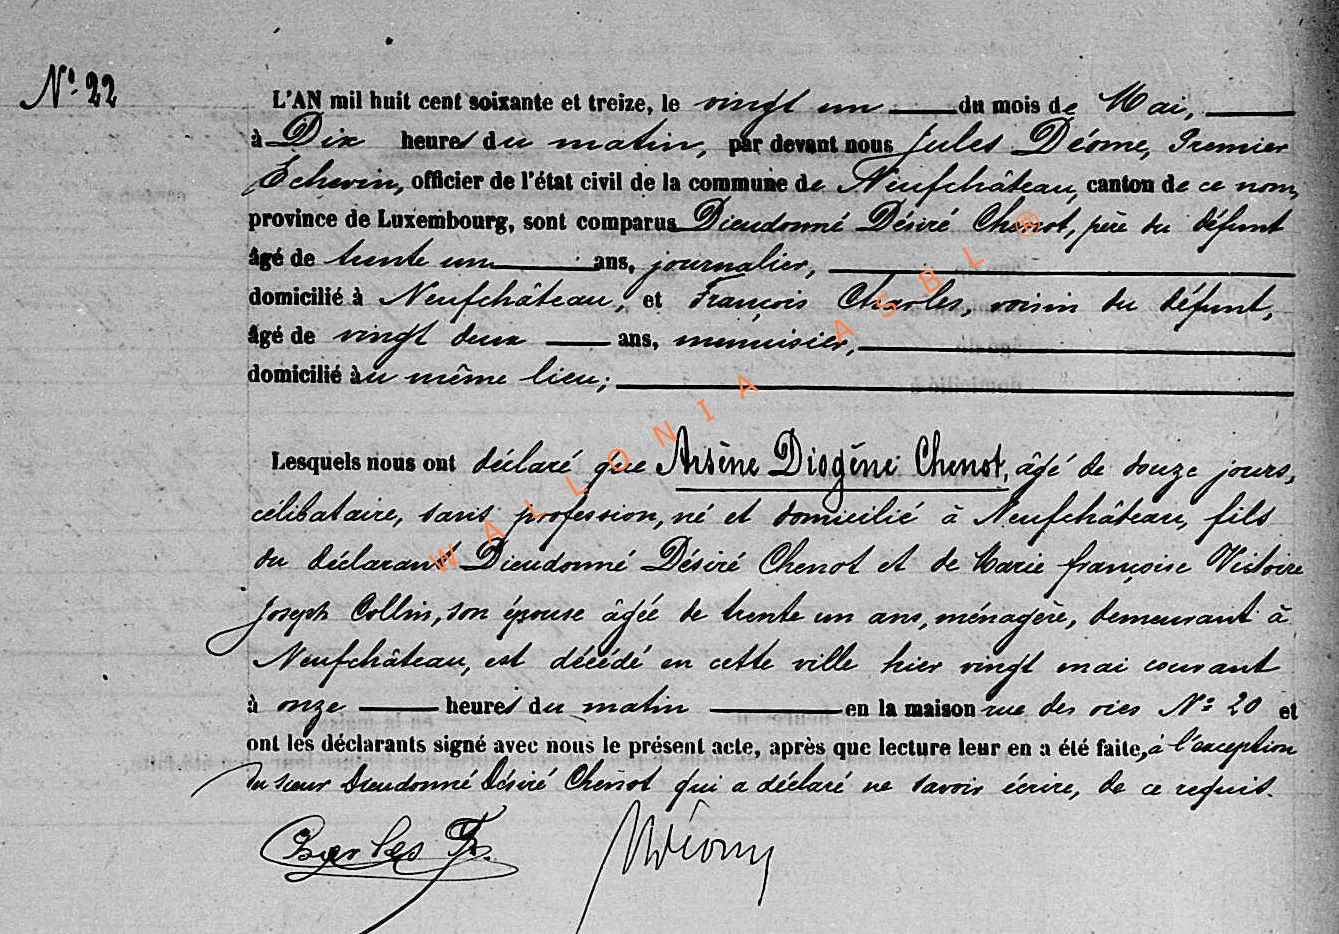 Nº 22
L'AN mil huit cent soixante et treize, le vingt un du mois de Mai,
à Dix heures du matin, par devant nous Jules Déome, Premier
Echevin, officier de l'état civil de la commune de Neufchâteau, canton de ce nom,
province de Luxembourg, sont comparus Dieudonné Désiré Chenot, père du défunt
âgé de trente un ans, journalier,
domicilié à Neufchâteau, et François Charles, voisin du défunt,
âgé de vingt deux ans, menuisier,
domicilié au même lieu;
Lesquels nous ont déclaré que Arsène Diogène Chenot, âgé de douze jours,
célibataire, sans profession, né et domicilié à Neufchâteau, fils
du déclarant Dieudonné Désiré Chenot et de Marie françoise Victoire
Joseph Collin, son épouse âgée de trente un ans, ménagère, demeurant à
Neufchâteau, est décédé en cette ville hier vingt mai courant
à onze heures du matin en la maison rue des oies Nº 20 et
ont les déclarants signé avec nous le présent acte, après que lecture leur en a été faite, à l'exception
du sieur Dieudonné Désiré Chenot qui a déclaré ne savoir écrire, de ce requis.
Charles F. JDéome
WALLONIA ASBL ®